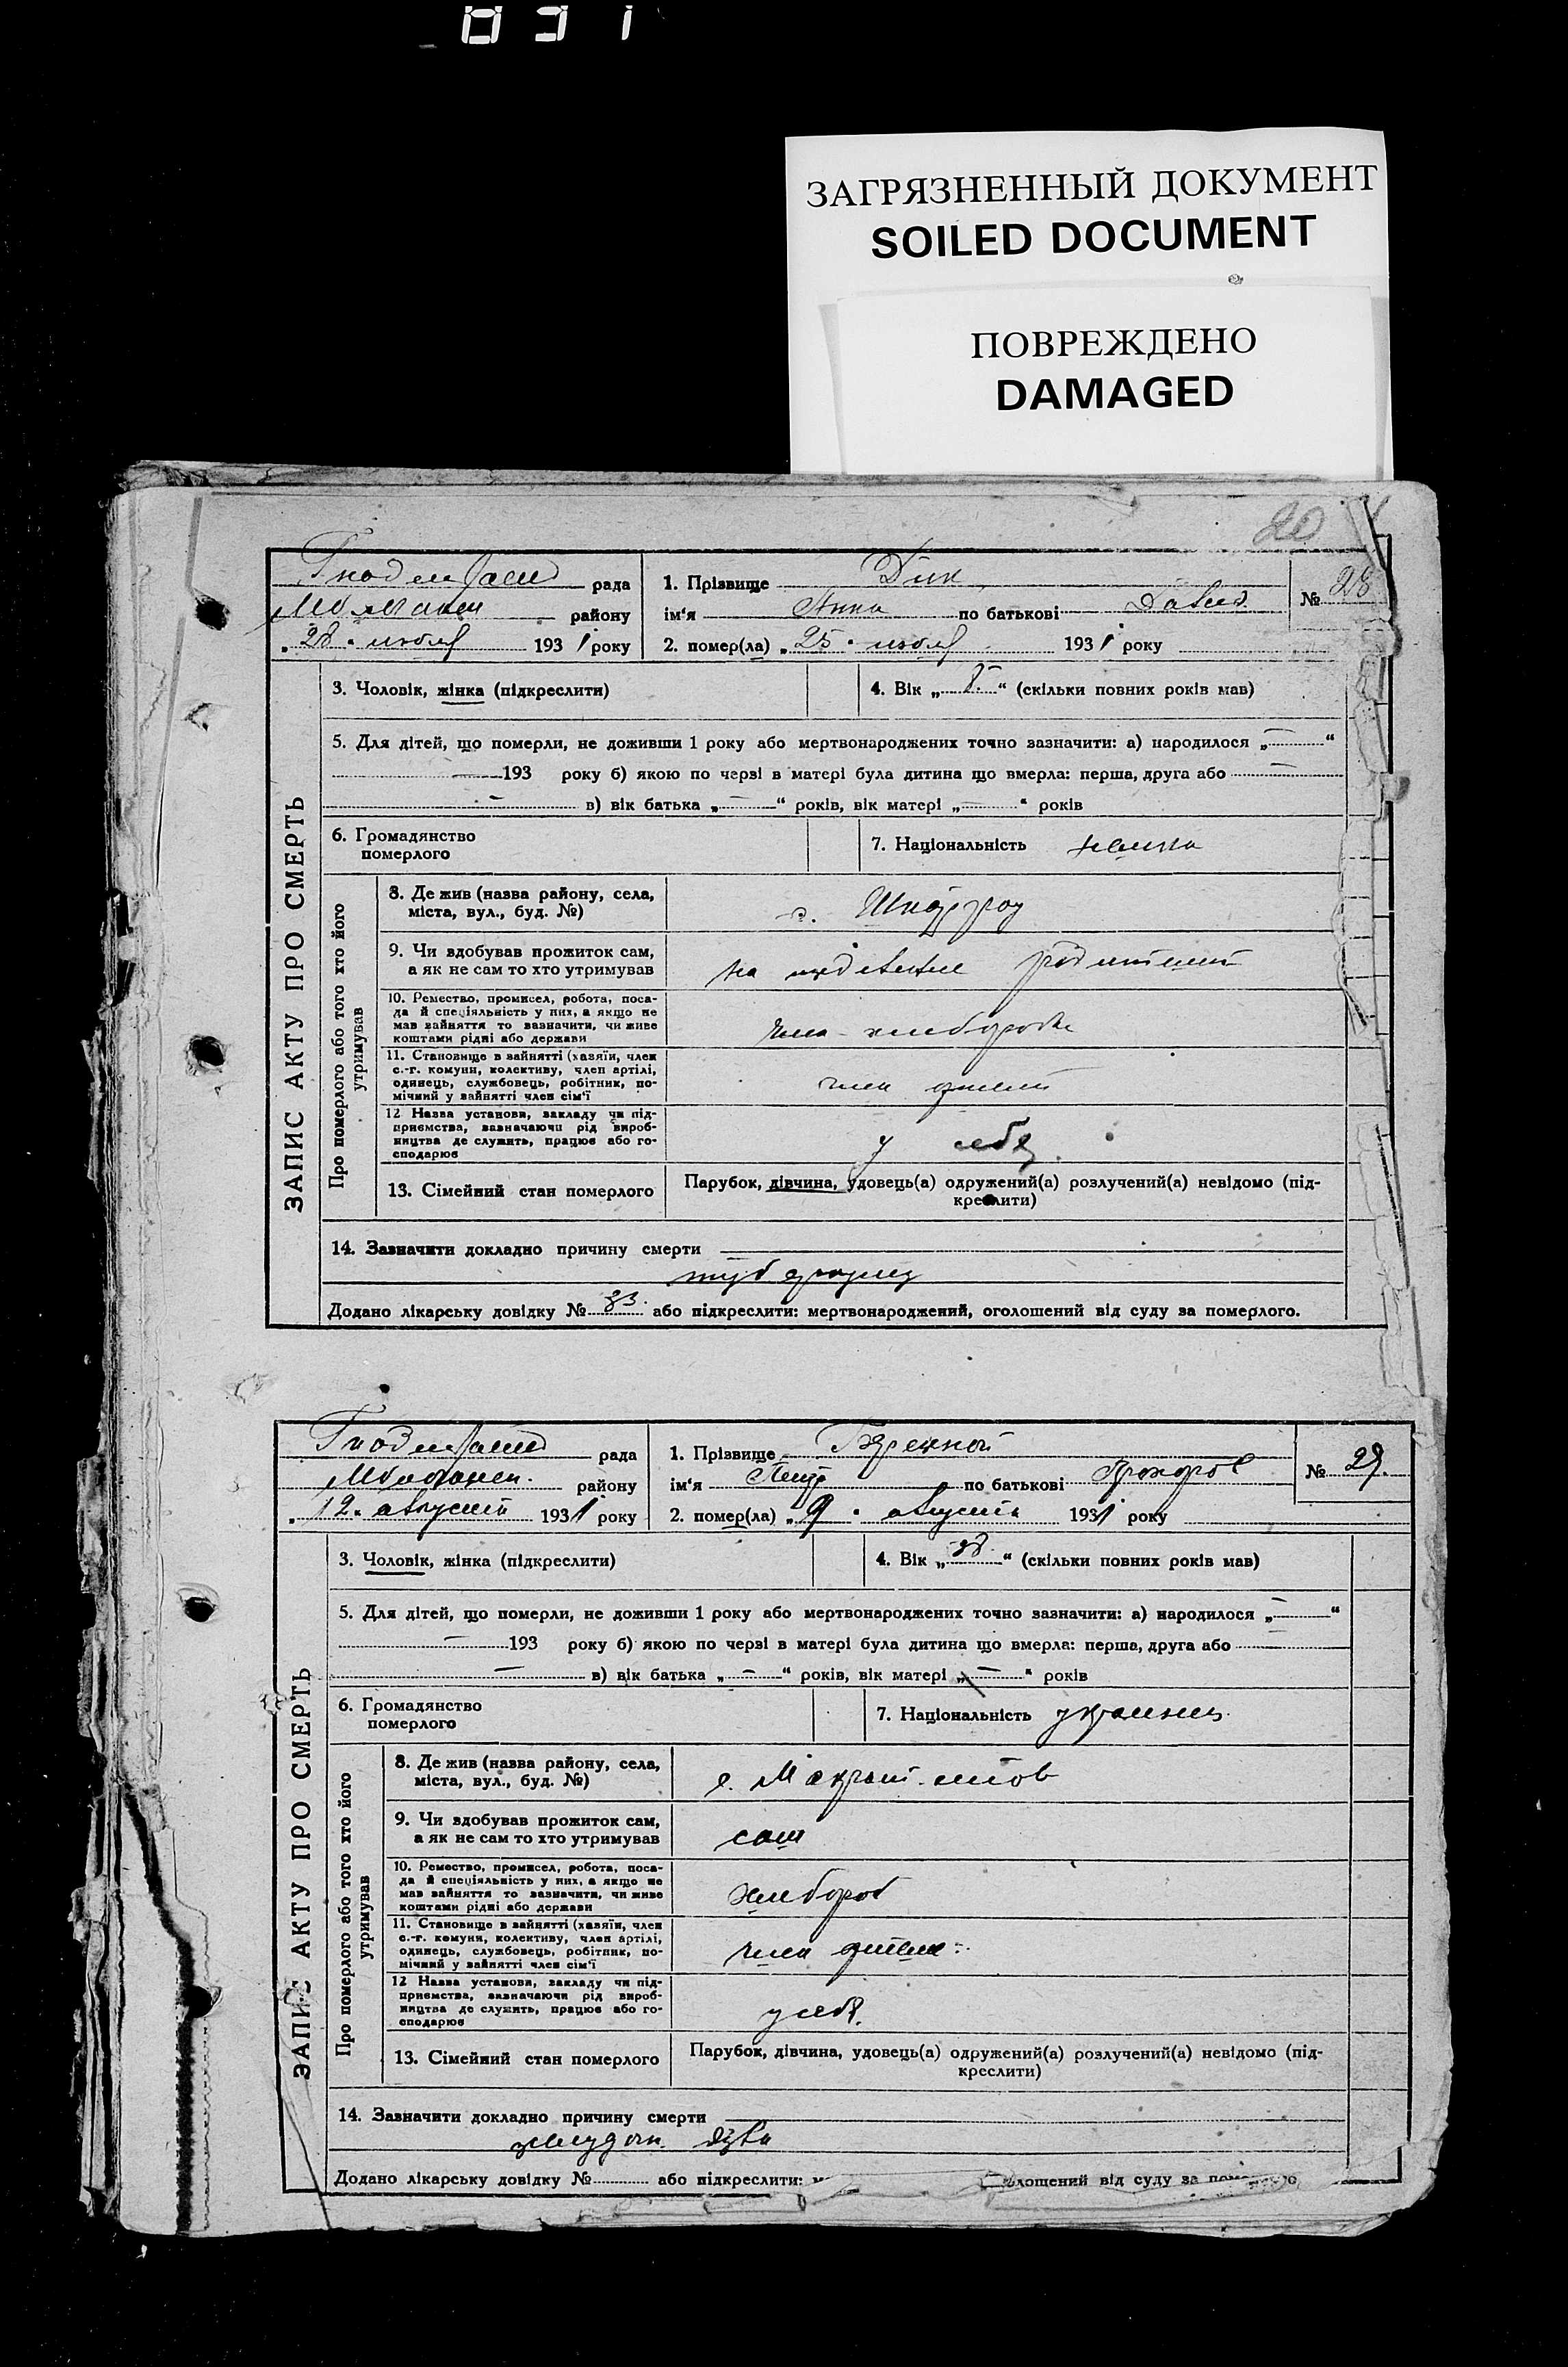 031
ЗАГРЯЗНЕННЫЙ ДОКУМЕНТ
SOILED DOCUMENT
ПОВРЕЖДЕНО
DAMAGED
20
рада
району
„28" июля 1931 року
1. Прізвище Дик
ім'я Анна по батькові Давид.
2. помер(ла) „25" июля 1931 року
№ 28
ЗАПИС АКТУ ПРО СМЕРТЬ
3. Чоловік, жінка (підкреслити)
4. Вік „8" (скільки повних років мав)
5. Для дітей, що померли, не доживши 1 року або мертвонароджених точно зазначити: а) народилося „—"
—193 року б) якою по черзі в матері була дитина що вмерла: перша, друга або —
— в) вік батька „—" років, вік матері „—" років
6. Громадянство
померлого
7. Національність немка
Про померлого або того хто його
утримував
8. Де жив (назва району, села,
міста, вул., буд. №)
с.
9. Чи вдобував прожиток сам,
а як не сам то хто утримував
на иждивение родителей
10. Ремество, промисел, робота, поса-
да й спеціяльність у них, а якщо не
мав зайняття то зазначити, чи живе
коштами рідні або держави
член хлебороба
11. Становище в зайнятті (хазяїн, член
с.-г. комуни, колективу, член артілі,
одинець, службовець, робітник, по-
мічний у зайнятті член сім'ї
член артели
12 Назва установи, закладу чи під-
приємства, зазначаючи рід вироб-
ництва де служить, працює або го-
сподарює
у себя.
13. Сімейний стан померлого
Парубок, дівчина, удовець(а) одружений(а) розлучений(а) невідомо (під-
креслити)
14. Зазначити докладно причину смерти
туберкулез
Додано лікарську довідку № 83. або підкреслити: мертвонароджений, оголошений від суду за померлого.
рада
району
„12" август 1931 року
1. Прізвище Бережной
ім'я Петр по батькові Прохоров
2. помер(ла) „9" август 1931 року
№ 29.
ЗАПИС АКТУ ПРО СМЕРТЬ
3. Чоловік, жінка (підкреслити)
4. Вік „" (скільки повних років мав)
5. Для дітей, що померли, не доживши 1 року або мертвонароджених точно зазначити: а) народилося „—"
—193 року б) якою по черзі в матері була дитина що вмерла: перша, друга або
— в) вік батька „—" років, вік матері „—" років
6. Громадянство
померлого
7. Національність украинец
Про померлого або того хто його
утримував
8. Де жив (назва району, села,
міста, вул., буд. №)
с.
9. Чи вдобував прожиток сам,
а як не сам то хто утримував
сам
10. Ремество, промисел, робота, поса-
да й спеціяльність у них, а якщо не
мав зайняття то зазначити, чи живе
коштами рідні або держави
хлебороб
11. Становище в зайнятті (хазяїн, член
с.-г. комуни, колективу, член артілі,
одинець, службовець, робітник, по-
мічний у зайнятті член сім'ї
член артели
12 Назва установи, закладу чи під-
приємства, зазначаючи рід вироб-
ництва де служить, працює або го-
сподарює
у себя.
13. Сімейний стан померлого
Парубок, дівчина, удовець(а) одружений(а) розлучений(а) невідомо (під-
креслити)
14. Зазначити докладно причину смерти
язва
Додано лікарську довідку № або підкреслити: від суду за